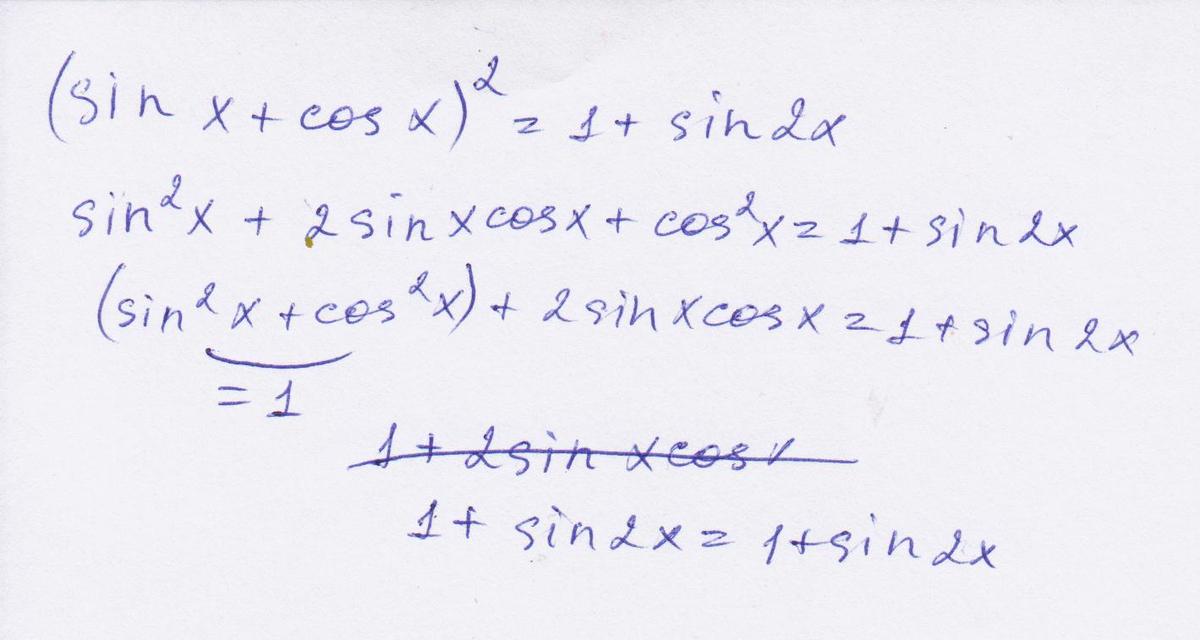 (sin x + cos x)² = 1 + sin 2x
sin²x + 2 sin x cos x + cos²x = 1 + sin 2x
(sin²x + cos²x) + 2 sin x cos x = 1 + sin 2x
= 1
1 + 2 sin x cos x
1 + sin 2x = 1 + sin 2x